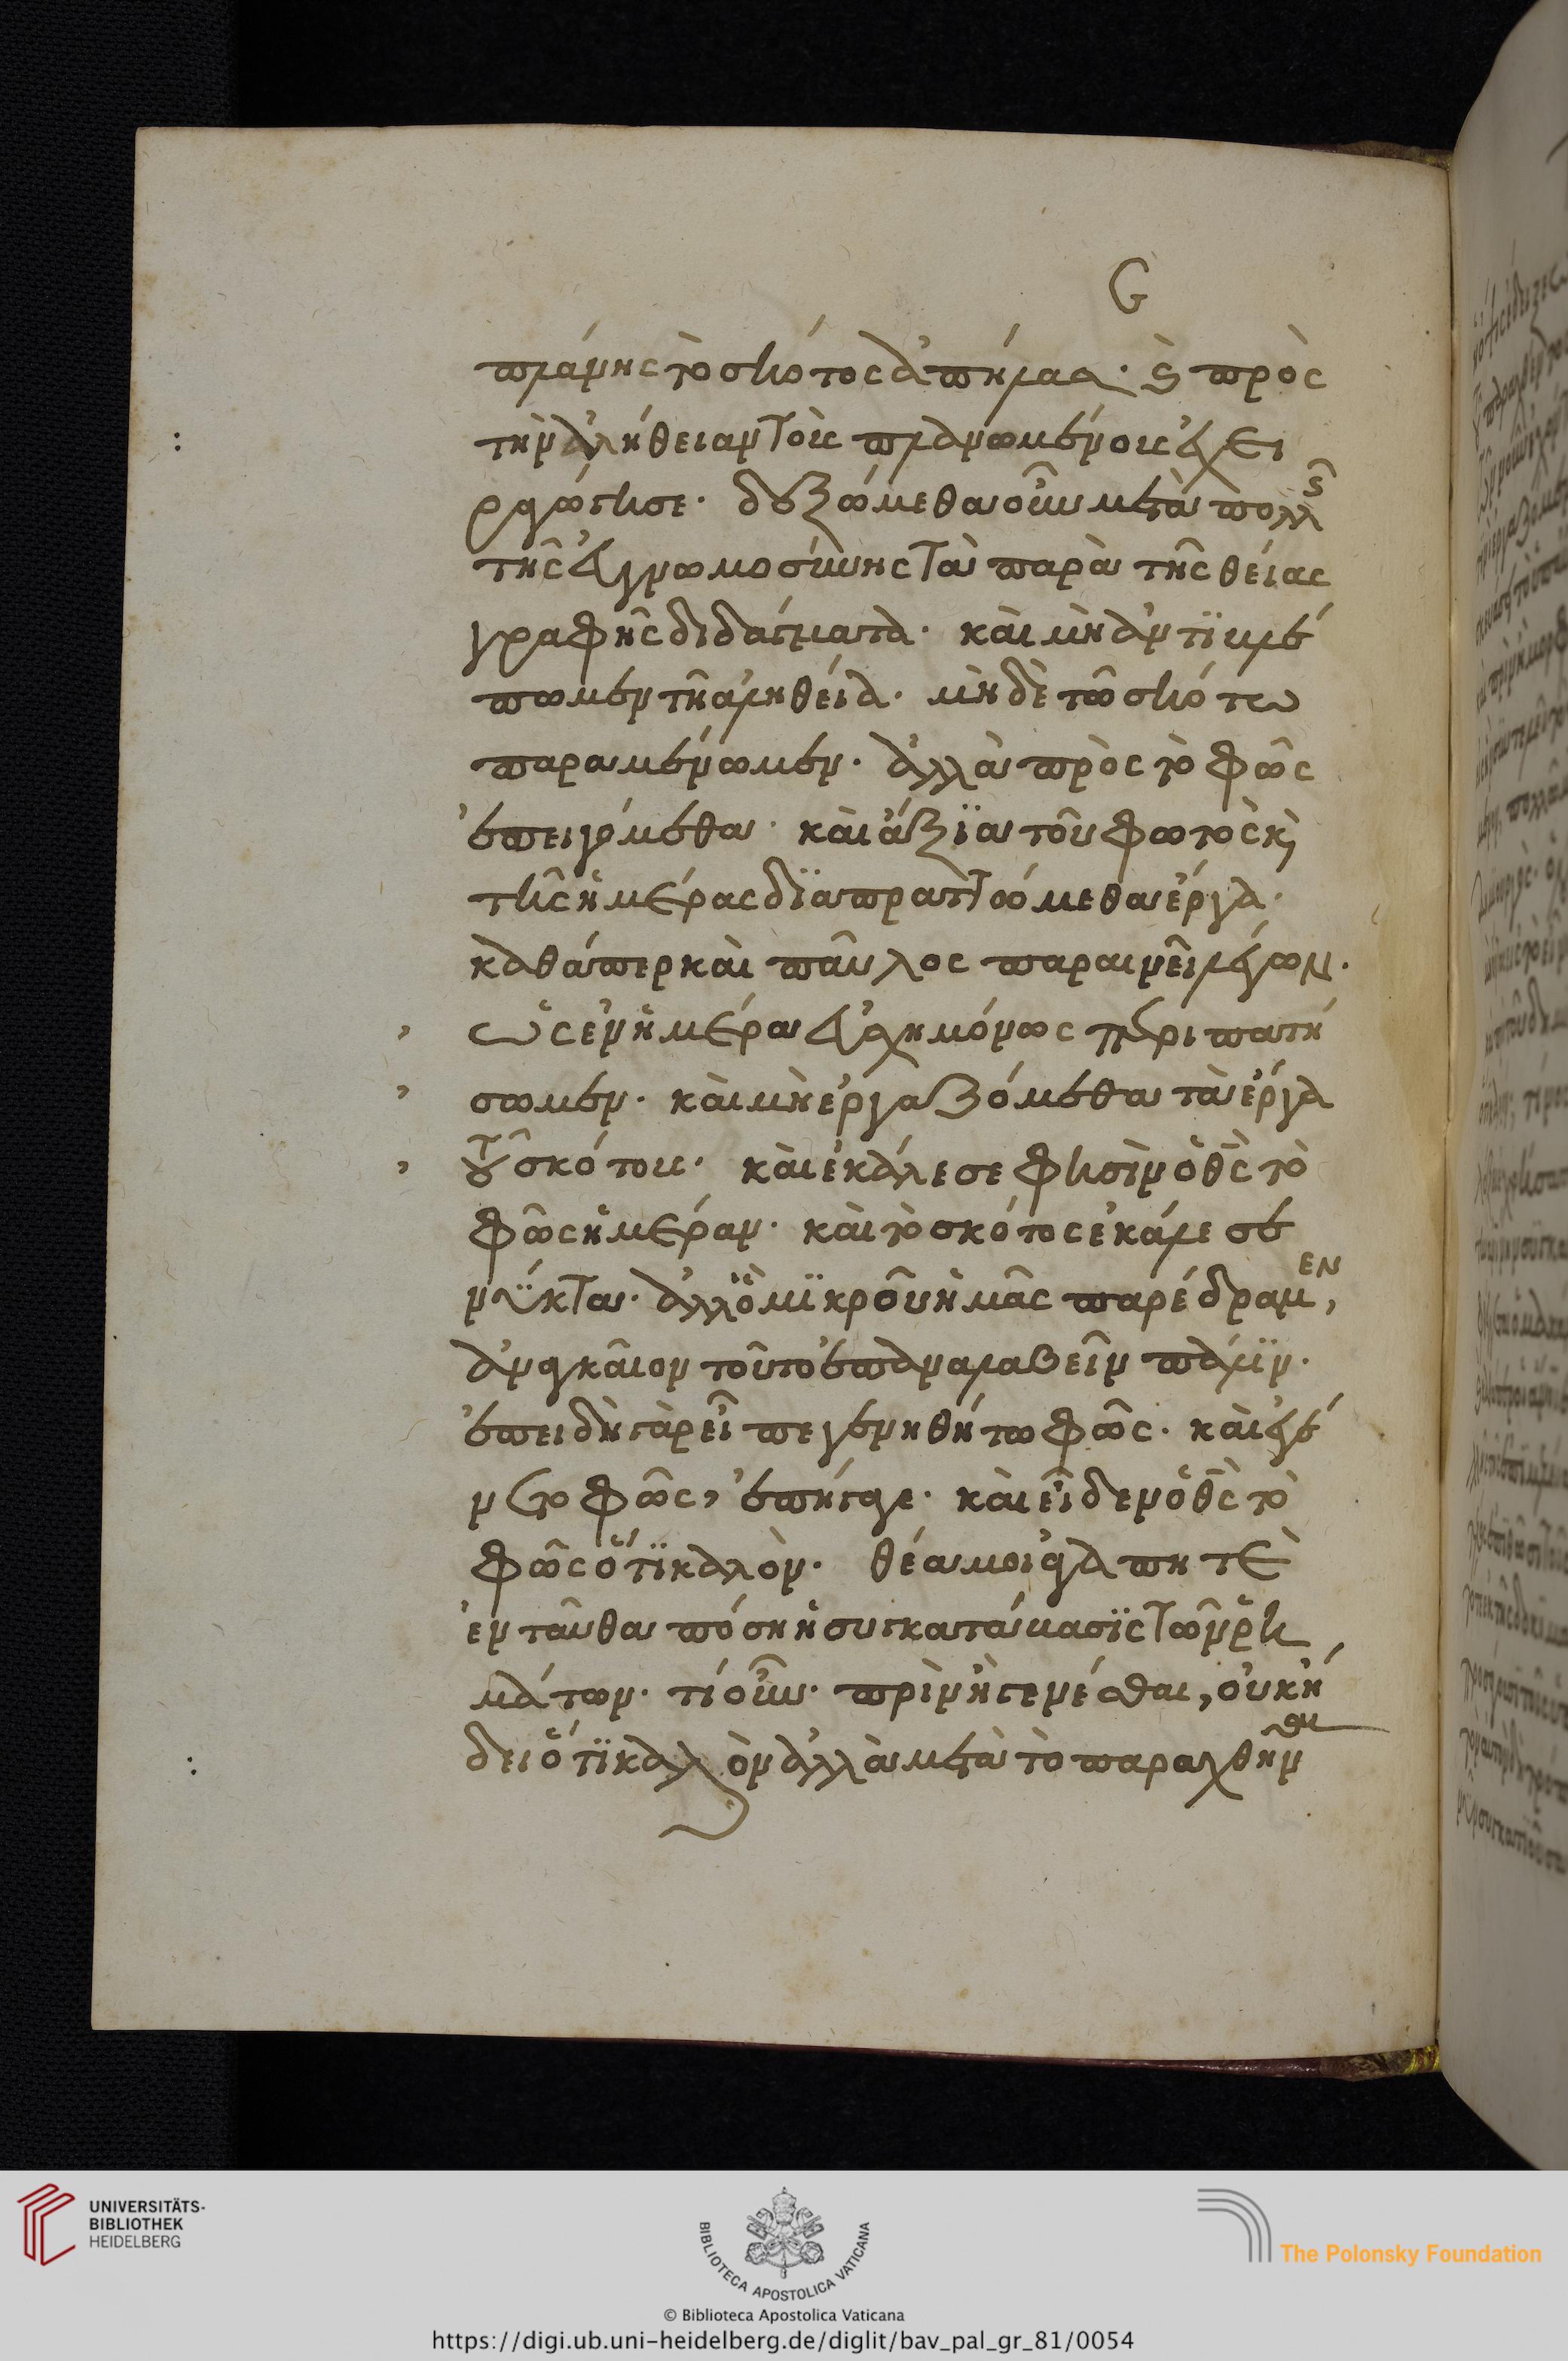 G
πλάνης τὸ σκότος ἀπήλασε· καὶ πρὸς
τὴν ἀλήθειαν τοὺς πλανωμένους ἐχει
ραγώγησε· δεξώμεθα οὖν μετὰ πολλῆς
τῆς εὐγνωμοσύνης τὰ παρὰ τῆς θείας
γραφῆς διδάγματα· καὶ μὴ ἀντιβλέ
πωμεν τῆ ἀληθεία· μὴ δὲ τῶ σκότω
παραμένωμεν· ἀλλὰ πρὸς τὸ φῶς
ἐπειγώμεθα· καὶ ἄξϊα τοῦ φωτὸς κὶ
τῆς ἡμέρας δϊαπραττώμεθα ἔργα·
καθάπερ καὶ παῦλος παραινεῖ λέγων.
, ὡς ἐν ἡμέρα εὐσχημόνως περιπατή
, σωμεν· καὶ μὴ ἐργαζόμεθα τὰ ἔργα
, τοῦ σκότους· καὶ ἐκάλεσε φησὶν ὁ θς τὸ
φῶς ἡμέραν· καὶ τὸ σκότος ἐκάλεσε
νύκτα· ἀλλ' ὃ μϊκροῦ ἡμᾶς παρέδραμεν,
ἀναγκαῖον τοῦτο ἐπαναλαβεῖν πάλϊν·
ἐπειδὴ γὰρ εἶπε γενηθήτω φῶς· καὶ ἐγέ
νετο φῶς, ἐπήγαγε· καὶ εἶδεν ὁ θς τὸ
φῶς ὅτϊ καλὸν· θέα μοι ἀγαπητὲ
ἐνταῦθα πόση ἡ συγκατάβασϊς τῶν ῥη
μάτων· τί οὖν· πρὶν ἢ γενέσθαι, οὐκ ἤ
δει ὅτϊ καλὸν ἀλλὰ μετὰ τὸ παραχθῆναι
UNIVERSITÄTS-
BIBLIOTHEK
HEIDELBERG
BIBLIOTECA APOSTOLICA VATICANA
The Polonsky Foundation
© Biblioteca Apostolica Vaticana
https://digi.ub.uni-heidelberg.de/diglit/bav_pal_gr_81/0054